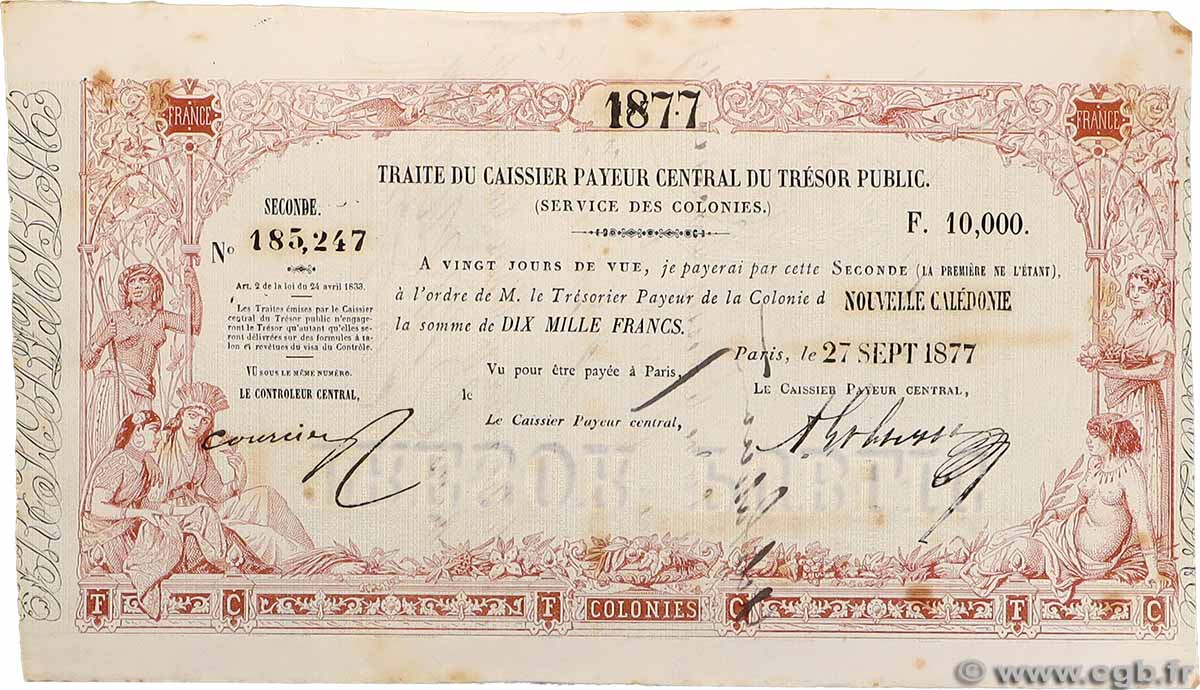 FRANCE
1877
FRANCE
TRAITE DU CAISSIER PAYEUR CENTRAL DU TRÉSOR PUBLIC.
(SERVICE DES COLONIES.)
SECONDE.
No 185,247
F. 10,000.
Art. 2 de la loi du 24 avril 1833.
Les Traites émises par le Caissier
central du Trésor public n'engage-
ront le Trésor qu'autant qu'elles se-
ront délivrées sur des formules à ta-
lon et revêtues du visa du Contrôle.
VU SOUS LE MÊME NUMÉRO.
LE CONTROLEUR CENTRAL,
A VINGT JOURS DE VUE, je payerai par cette SECONDE (LA PREMIÈRE NE L'ÉTANT),
à l'ordre de M. le Trésorier Payeur de la Colonie d NOUVELLE CALÉDONIE
la somme de DIX MILLE FRANCS.
Paris, le 27 SEPT 1877
Vu pour être payée à Paris,
LE CAISSIER PAYEUR CENTRAL,
le
Le Caissier Payeur central,
courcier
TRESOR PUBLIC
F C F COLONIES C F C
© www.cgb.fr